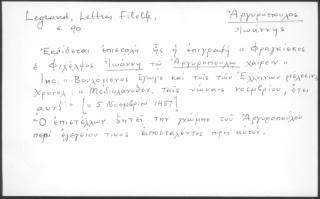 Legrand, Lettres Filelfe,
s. 90
Ἀργυρόπουλος
Ἰωάννης
Ἐκδίδεται ἐπιστολὴ ἧς ἡ ἐπιγραφή « Φραγκίσκος
ὁ Φιλέλφος Ἰωάννῃ τῷ Ἀργυροπούλῳ χαίρειν »
Inc. « Βουλόμενος ἔγωγε καὶ τοῖς τῶν Ἑλλήνων
Χρονολ: « Μεδιολάνοθεν, ταῖς νώναις νοεμβρίου, ἔτει
αυνζʹ » [= 5 Νοεμβρίου 1457]
Ὁ ἐπιστέλλων ζητεῖ τὴν γνώμην τοῦ Ἀργυροπούλου
περὶ ἐλεγείου τινος ἀποσταλέντος πρὸς αὐτόν.